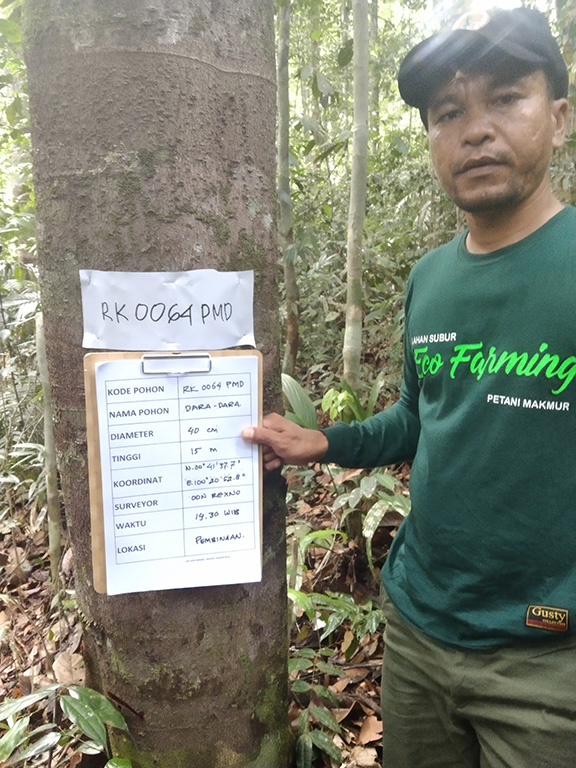 RK 0064 PMD
KODE POHON RK 0064 PMD
NAMA POHON DARA-DARA
DIAMETER 40 cm
TINGGI 15 m
KOORDINAT N.00° 41' 37.7"
E.100° 20' 52.8"
SURVEYOR OON REXNO
WAKTU 14.30 WIB
LOKASI PEMBINAAN.
LAHAN SUBUR
Eco Farming
PETANI MAKMUR
Gusty